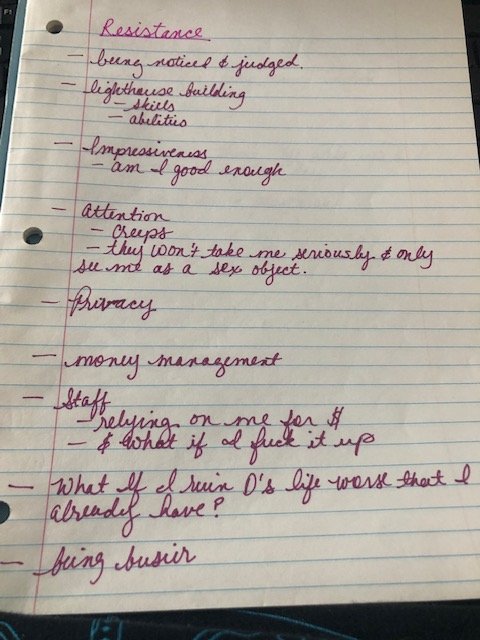 Resistance
- being noticed & judged.
- lighthouse building
- skills
- abilities
- Impressiveness
- am I good enough
- Attention
- Creeps
- they won't take me seriously & only
see me as a sex object.
- Privacy
- money management
- Staff
- relying on me for $
- & what if I fuck it up
- What if I ruin D's life worse that I
already have?
- being busier